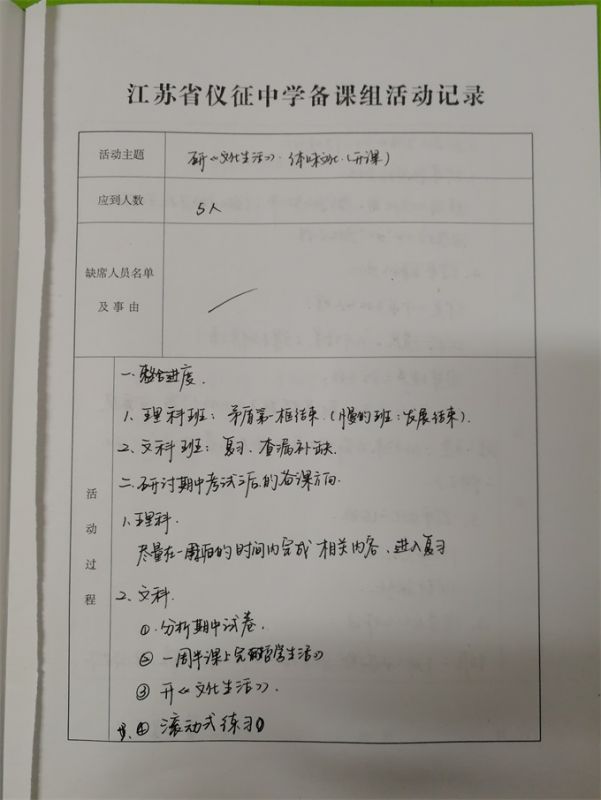 江苏省仪征中学备课组活动记录
活动主题 研《文化生活》·体味文化(开课)
应到人数 5人
缺席人员名单
及事由
活动过程
一、整合进度.
1、理科班：矛盾第一框结束.(慢的班：发展结束).
2、文科班：复习、查漏补缺.
二、研讨期中考试之后的备课方向.
1、理科.
尽量在一周后的时间内完成相关内容、进入复习
2、文科.
①.分析期中试卷.
② 一周半课上完《哲学生活》
③ 开《文化生活》.
④ 滚动式练习